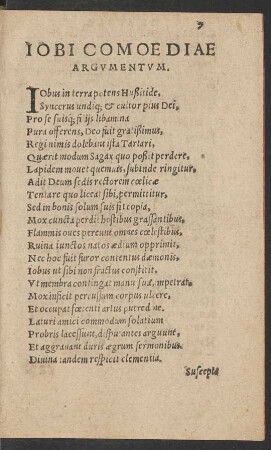 IOBI COMOEDIAE
ARGVMENTVM.
IObus in terra potens Hussitide,
Syncerus undiq; & cultor pius Dei,
Pro se suisq; filijs libamina
Pura offerens, Deo fuit gratißimus,
Regi nimis dolebat ista Tartari,
Quærit modum Sagax quo poßit perdere,
Lapidem mouet quemuis, subinde ringitur,
Adit Deum sedis rectorem cœlicæ
Tentare quo liceat sibi, permittitur,
Sed in bonis solum suis fit copia,
Mox cuncta perdit hostibus grassantibus,
Flammis oues pereunt omnes cœlestibus,
Ruina iunctos natos ædium opprimit,
Nec hoc fuit furor contentus dæmonis,
Iobus ut sibi non fractus constitit,
Vt membra contingat manu suâ, impetrat,
Mox inficit percussum corpus ulcere,
Et occupat fœtenti artus putredine,
Laturi amici commodum solatium
Probris lacessunt, disputantes arguunt,
Et aggrauant duris ægrum sermonibus.
Diuina tandem respicit clementia,
Suscepta